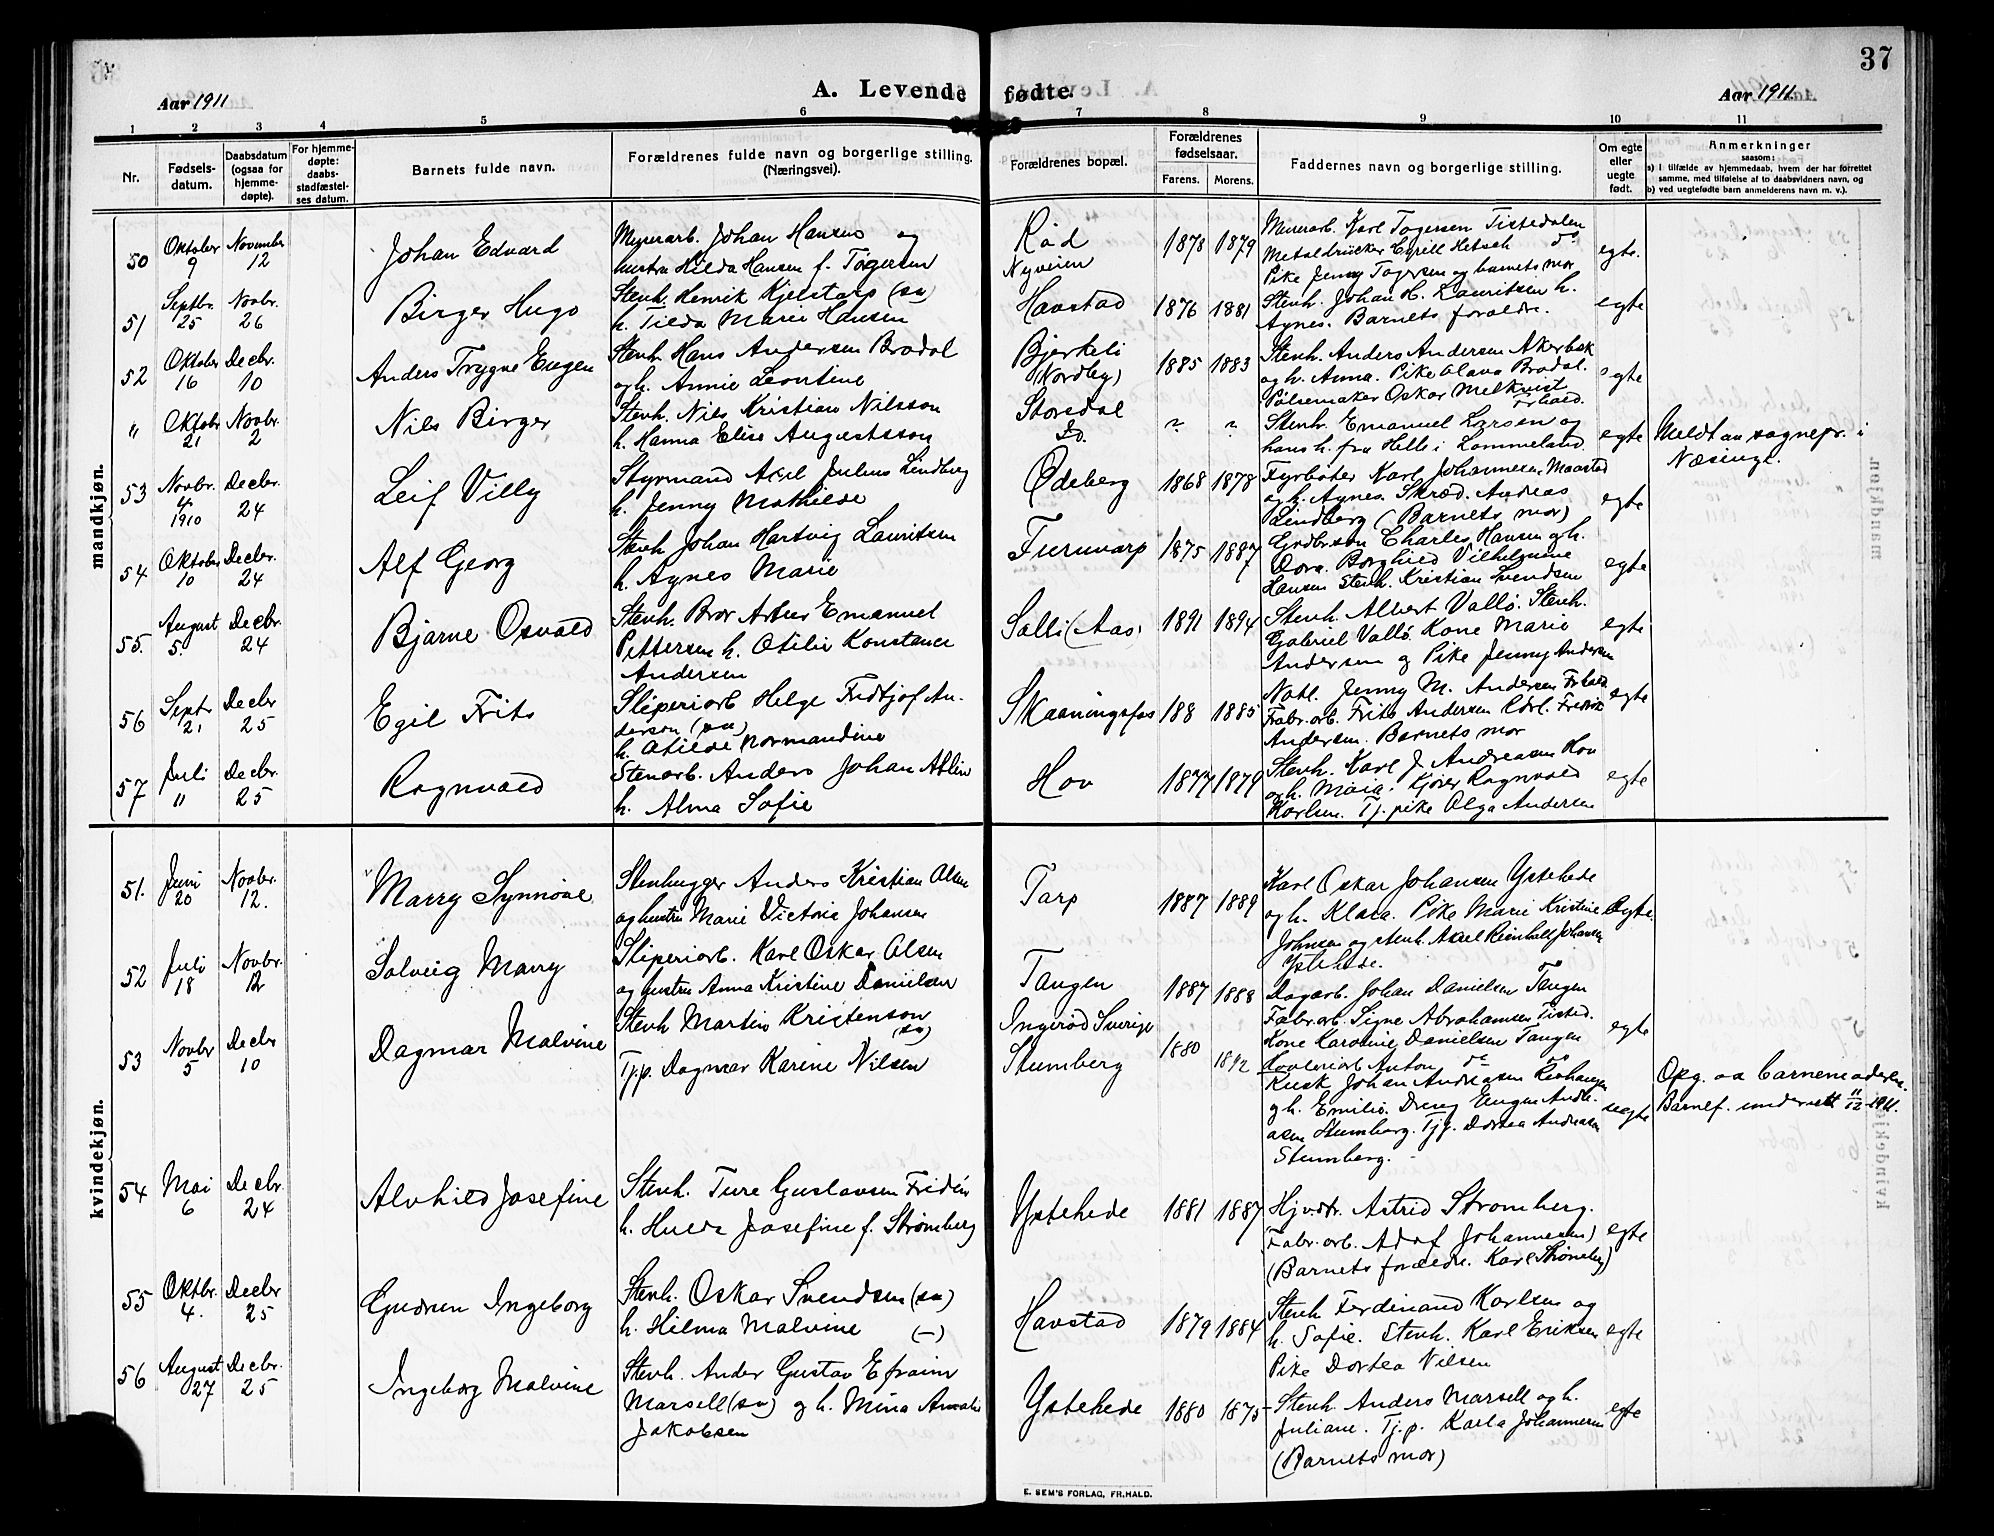 37
Aar 1911
A. Levende fødte.
Aar 1911.
1 2 3 4 5 6 7 8 9 10 11
Nr.
Fødsels-
datum.
Daabsdatum
(ogsaa for
hjemme-
døpte).
For hjemme-
døpte:
daabs-
stadfæstel-
ses datum.
Barnets fulde navn.
Forældrenes fulde navn og borgerlige stilling.
(Næringsvei).
Forældrenes bopæl.
Forældrenes
fødselsaar.
Farens. Morens.
Faddernes navn og borgerlige stilling.
Om egte
eller
uegte
født.
Anmerkninger
saasom:
a) i tilfælde av hjemmedaab, hvem der har forrettet
samme, med tilføielse af to daabsvidners navn, og
b) ved uegtefødte barn anmelderens navn m. v.).
mandkjøn.
50
Oktober
9
November
12
Johan Edvard
Murerarb. Johan Hansen og
hustru Hilda Hansen f. Tøgersen
Rød
Nyveien
1878 1879
Murerarb. Karl Tøgersen Tistedalen
Metaldrücker Cyrill Hetsch do
Pike Jenny Tøgersen og barnets mor
egte.
51
Septbr.
25
Novbr.
26
Birger Hugo
Stenh. Henrik Kjelstarp (sv)
h. Tilda Marie Hansen
Havstad
1876 1881
Stenh. Johan H. Lauritsen h.
Agnes. Barnets foraldre.
egte
52
Oktober
16
Decbr.
10
Anders Trygve Eugen
Stenh. Hans Andersen Bradal
og h. Annie Leontine
Bjerkeli
(Nordby)
1885 1883
Stenh. Anders Andersen Akerbæk
og h. Anna. Pike Olava Bradal.
Pølsemaker Oskar Melkvist
Frhald.
egte
"
Oktobr
21
Novbr.
2
Nils Birger
Stenh. Nils Kristian Nilsson
h. Hanna Elise Augustsson
Storedal
Id.
? ?
Stenh. Emanuel Larsen og
hans h. fra Helle i Lommeland.
egte
Meldt av sognepr. i
Næsinge.
53
Novbr.
4
1910
Decbr.
24
Leif Villy
Styrmand Axel Julius Lindberg
h. Jenny Mathilde
Ødeberg
1868 1878
Fyrbøter Karl Johannesen Maastad
og h. Agnes. Skræd. Andreas
Lindberg (Barnets mor)
egte
54
Oktober
10
Decbr.
24
Alf Georg
Stenh Johan Hartvig Lauritsen
h. Agnes Marie
Furuvarp
1875 1887
Grdbr.søn Charles Hansen og h.
Dora. Borghild Vilhelmine
Hansen Stenh. Kristian Svendsen
egte
55.
August
5.
Decbr.
24
Bjarne Osvald
Stenh. Bror Artur Emanuel
Pettersen h. Otilie Konstance
Andersen
Solli (Aas)
1891 1894
Stenh. Albert Vallø. Stenh.
Gabriel Vallø. Kone Marie
Andersen og Pike Jenny Andersen
egte
56
Septr
21
Decbr
25
Egil Frits
Sliperiarb Helge Fridtjof An-
derson (sv)
h. Otilde Normandine
Skaaningsfos
188 1885
Natl. Jenny M. Andersen Frhald
Fabr.arb. Frits Andersen Karl. Fredrik
Andersen. Barnets mor
egte
57
Juli
11
Decbr.
25
Ragnvald
Stenarb. Anders Johan Ablin
h. Alma Sofie
Hov
1877 1879
Stenh. Karl J. Andreasen Hov
og h. Maia. Kjører Ragnvald
Karlsen. Tj. pike Olga Andersen
egte
kvindekjøn.
51.
Juni
20
Novbr.
12.
Marry Synnøve
Stenhugger Anders Kristian Olsen
og hustru Marie Victoria Johansen
Tarp
1887 1889
Karl Oskar Johansen Ystehede
og h. Klara. Pike Marie Kristine
Johnsen og stenh. Axel Reinhalt Johansen
Ystehede.
Egte.
52
Juli
18
Novbr.
12
Solveig Marry
Sliperiarb. Karl Oskar Olsen
og hustru Anna Kristine Danielsen
Tangen
1887 1888
Dagarb. Johan Danielsen Tangen
Fabr.arb. Signe Abrahamsen Tisted.
Kone Karoline Danielsen Tangen
Anton do do
egte
53
Novbr
5
Decbr
10
Dagmar Malvine
Stenh Martin Kristenson
(sv)
Tj.p. Dagmar Karine Nilsen
Ingerød Sverige
Stumberg
1880 1892
Kusk Johan Andreasen
og h. Emilie. Dreng Eugen Andre-
asen Stumberg. Tj.p. Dortea Andreasen
Stumberg.
uegte
Opg. av barnemoderen.
Barnef. underrett 11/12 1911.
54
Mai
6
Decbr.
24
Alvhild Josefine
Stenh. Ture Gustavsen Fridén
h. Hulda Josefine f. Strømberg
Ystehede
1881 1887
Hjv.dr. Astrid Stromberg.
Fabr.arb. Adof Johannesen)
(Barnets forældre. Karl Strømberg)
egte
55
Oktbr.
4.
Decbr
25
Gudrun Ingeborg
Stenh. Oskar Svendsen (sv)
h. Hilma Malvine (–)
Havstad
1879 1884
Stenh Ferdinand Karlsen og
h. Sofie. Stenh. Karl Eriksen
Pike Dortea Nilsen
egte
56
August
27
Decbr.
25
Ingeborg Malvine
Stenh. Ander Gustav Efraim
Marsell (sv) og h. Mina Amalie
Jakobsen
Ystehede
1880 1875
Stenh. Anders Marsell og h.
Juliane. Tj.p. Karla Johannesen
(Barnets mor)
egte
E. SEM'S FORLAG, FR.HALD.